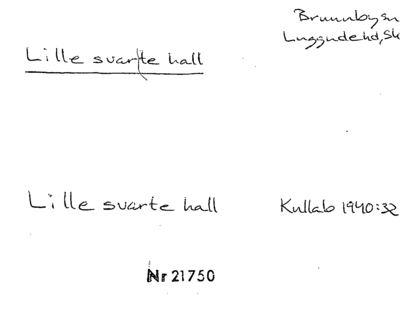 Brunnbysn
Luggudehd, Sk
Lille svarte hall
Lille svarte hall
Kullab 1940:32
Nr 21750